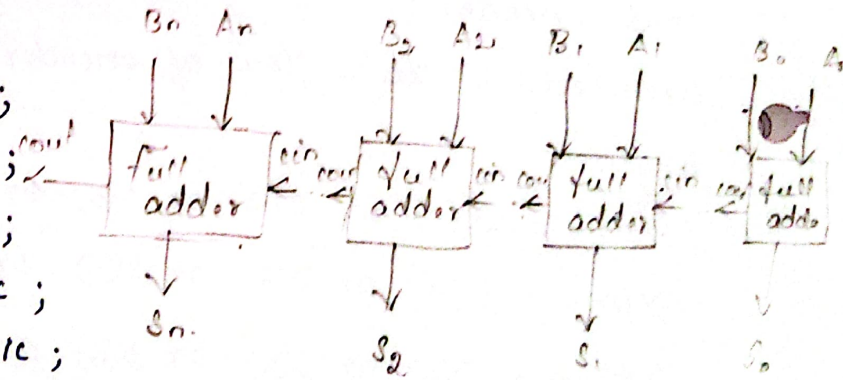 Bn An B2 A2 B1 A1 B0 A0
;
cout full adder cin cout full adder cin cou full adder cin cou full adde
;
;
c ;
ic ;
Sn. S2 S1 S0